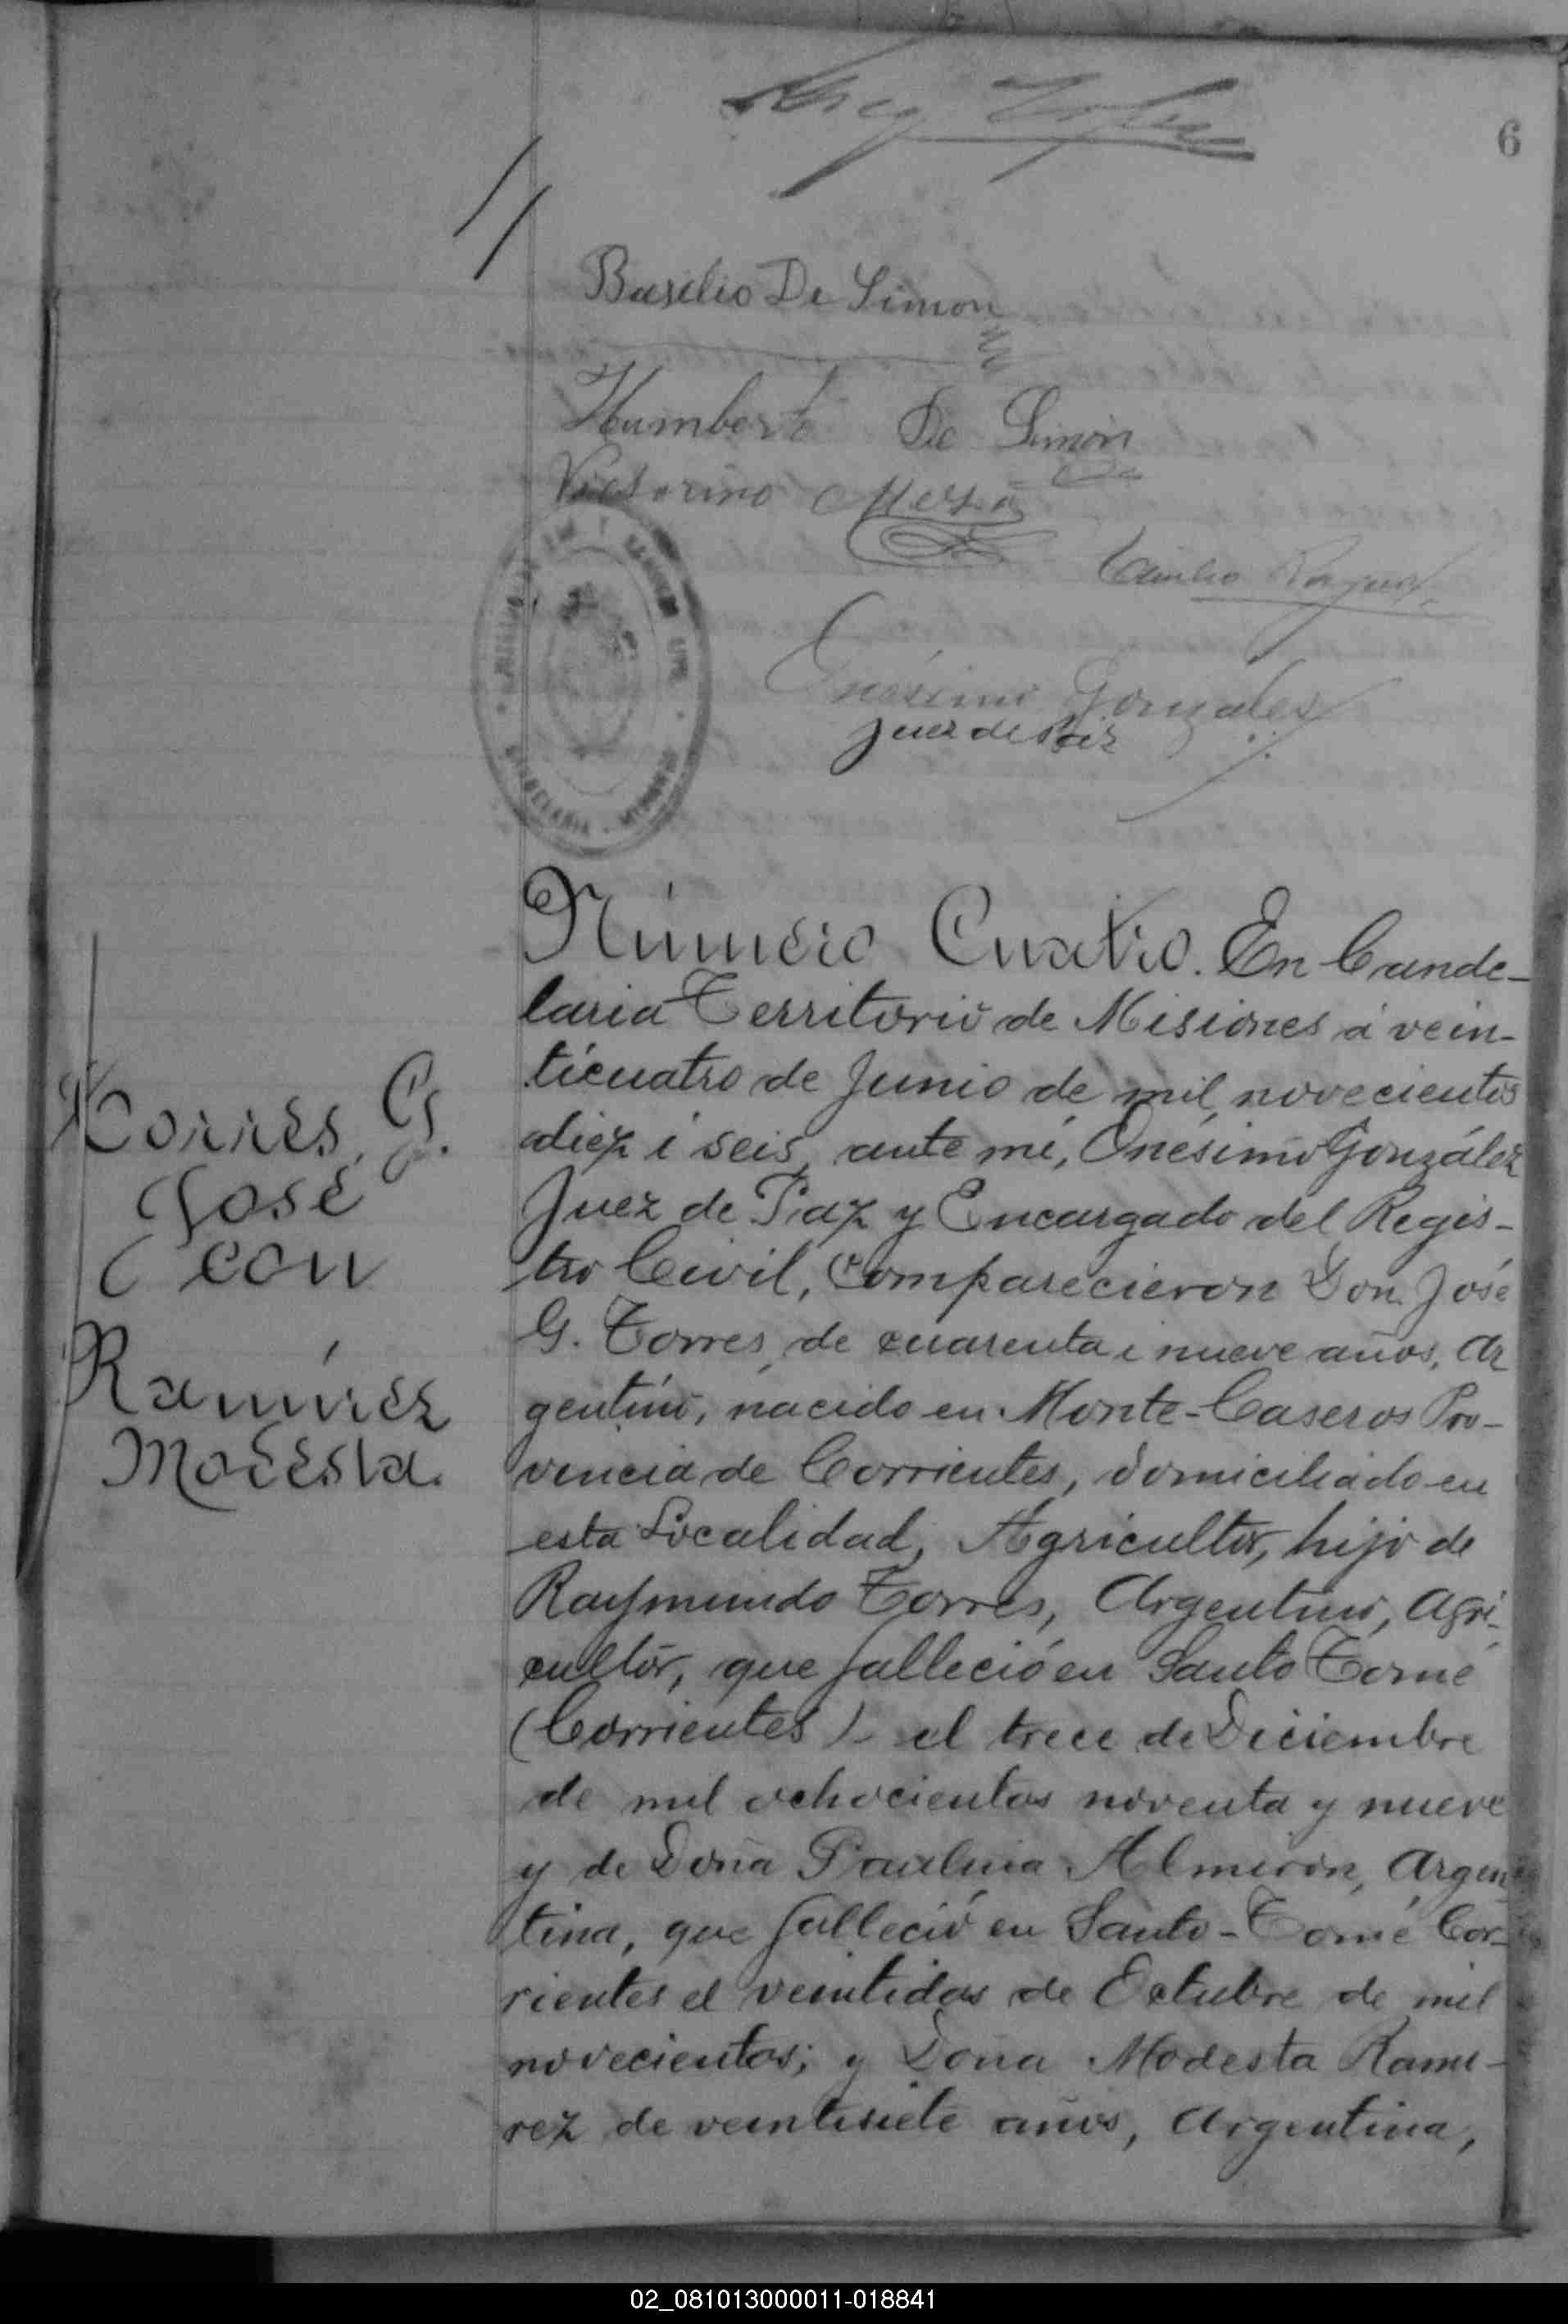 6
Basilio De Simon
Humberto De Simon
Victorino Mesa
Onésimo Gonzales
Juez de Paz
Número Cuatro. En Cande-
laria Territorio de Misiones á vein-
ticuatro de Junio de mil novecientos
diez i seis, ante mí, Onésimo González
Juez de Paz y Encargado del Regis-
tro Civil, comparecieron Don José
G. Torres, de cuarenta i nueve años, Ar
gentino, nacido en Monte-Caseros Pro-
vincia de Corrientes, domiciliado en
esta Localidad, Agricultor, hijo de
Raymundo Torres, Argentino, Agri-
cultor, que falleció en Santo Tomé
(Corrientes) - el trece de Diciembre
de mil ochocientos noventa y nueve
y de Doña Paulina Almirón, Argen
tina, que falleció en Santo-Tomé Cor-
rientes el veintidos de Octubre de mil
novecientos; y Doña Modesta Rami-
rez de veintisiete años, Argentina,
Torres, G.
José
con
Ramírez
Modesta.
02_081013000011-018841